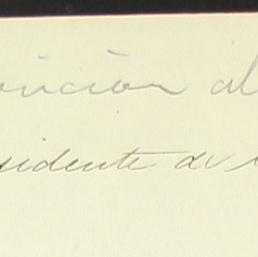 nición al
sidente de